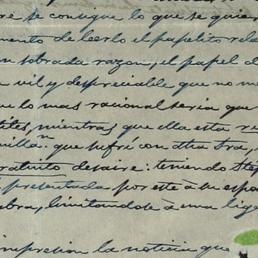 re se consigue lo que se quier
mento de leerlo el papelito rela
n sobrada razon, el papel d
vil y despreciable que no me
ue lo mas racional seria que
tiles, mientras que ella esta re
milla: que sufrí con otra bra,
ratuito desaire: teniendo Step
presentada por este á tu espo
bra, limitandote á una liga
impresion la noticia que